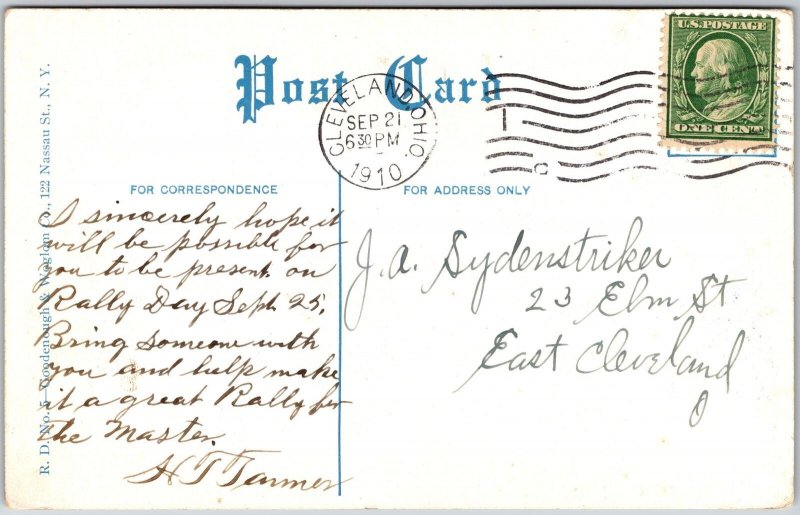 Post Card
U.S. POSTAGE
ONE CENT
CLEVELAND, OHIO.
SEP 21
6 30 PM
1910
FOR CORRESPONDENCE
FOR ADDRESS ONLY
I sincerely hope it
will be possible for
you to be present on
Rally Day Sept. 25.
Bring someone with
you and help make
it a great Rally for
the Master.
J. A. Sydenstriker
23 Elm St
East Cleveland
O
R. D. No. 5—Goodenough & Woglom Co., 122 Nassau St., N. Y.